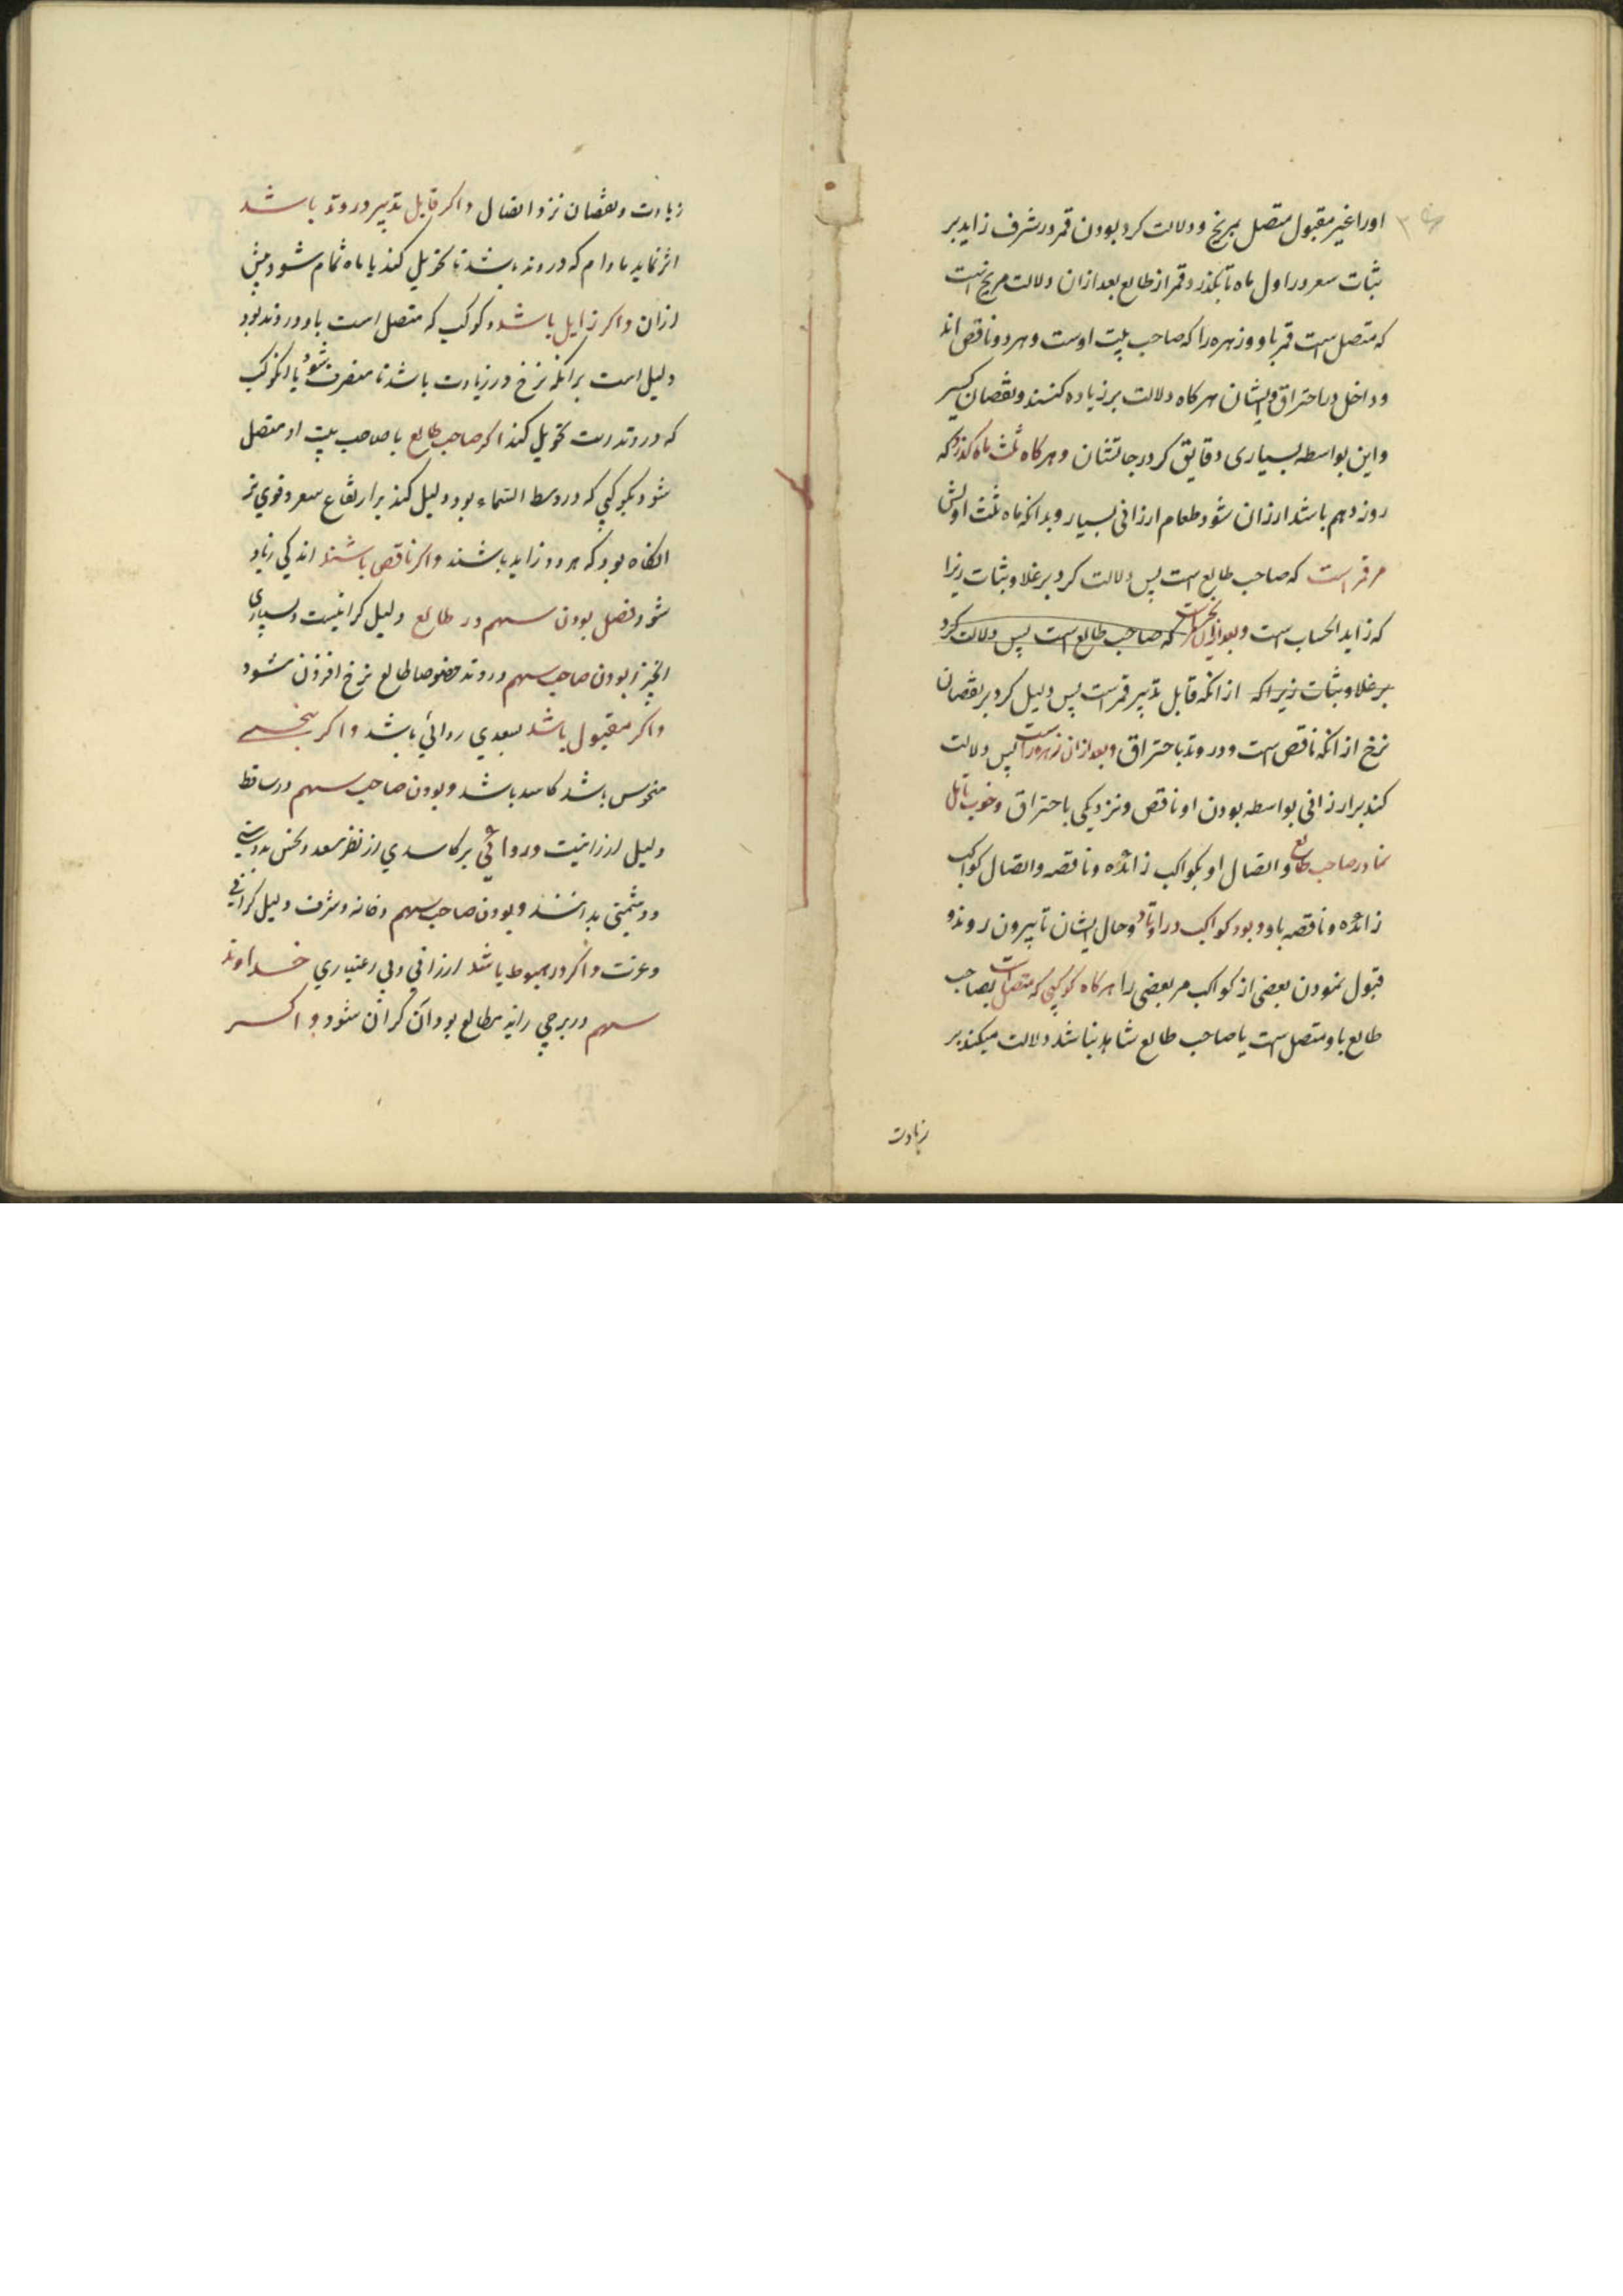 اورا غیر مقبول متصل بمریخ و دلالت کرد بودن قمر در شرف زاید بر
ثبات سعر در اول ماه تا بگذرد قمر از طالع بعد ازان دلالت مریخ است
که متصل است قمر باو و زهره را که صاحب بیت اوست و هر دو ناقص اند
و داخل در احتراق و ایشان هرکاه دلالت بر زیاده کنند و نقصان کسیر
و این بواسطه بسیاری دقایق کرد درجاتشان و هرکاه ثلث ماه کذرد که
روز دهم باشد ارزان شود طعام ارزانی بسیار و بدانکه ماه ثلث اولش
مر قمر است که صاحب طالع است پس دلالت کرد بر غلا و ثبات زیرا
که زاید الحساب است و بعد ازان که صاحب طالع است پس دلالت کرد
بر غلا و ثبات زیرا که از انکه قابل تدبیر قمر است پس دلیل کرد بر نقصان
نرخ از انکه ناقص است و در وتد باحتراق و بعد ازان زهره راست پس دلالت
کند بر ارزانی بواسطه بودن او ناقص و نزدیکی باحتراق و خوب تامل
نما در صاحب طالع و اتصال او بکواکب زائده و ناقصه و اتصال کواکب
زائده و ناقصه باو و بود کواکب در اوتاد و حال ایشان تا بیرون روند و
قبول نمودن بعضی از کواکب مر بعضی را هرکاه کوکبی که متصل است بصاحب
طالع باو متصل است یا صاحب طالع شاهد نباشد دلالت میکند بر
زیادت
زیادت و نقصان نزد اتصال و اکر قابل تدبیر در وتد باشد
اثر نماید مادام که در وتد باشد تا تحویل کند یا ماه تمام شود پیش
ازان و اکر زایل باشد و کوکب که متصل است باو در وتد بود
دلیل است بر انکه نرخ در زیادت باشد تا منصرف شود یا انکوکب
که در وتد است تحویل کند اکر صاحب طالع با صاحب بیت او متصل
شود بکوکبی که در وسط السماء بود دلیل کند بر ارتفاع سعر و قوی تر
انکاه بود که هر دو زاید باشند و اکر ناقص باشند اندکی زیاد
شود فصل بودن سهم در طالع دلیل کرانیست و بسیاری
انچیز و بودن صاحب سهم در وتد خصوصا طالع نرخ افزون شود
و اکر مقبول باشد بسعدی روائی باشد و اکر بنحسی
منحوس باشد کاسد باشد و بودن صاحب سهم در ساقط
دلیل ارزانیت و روائی بر کاسدی از نظر سعد و نحس بدوستی
و دشمنی بدانند و بودن صاحب سهم در خانه و شرف دلیل کرانی
و عزت و اکر در هبوط باشد ارزانی و بی اعتباری خداوند
سهم در برجی رانه مطالع بود آن کران شود و اکر